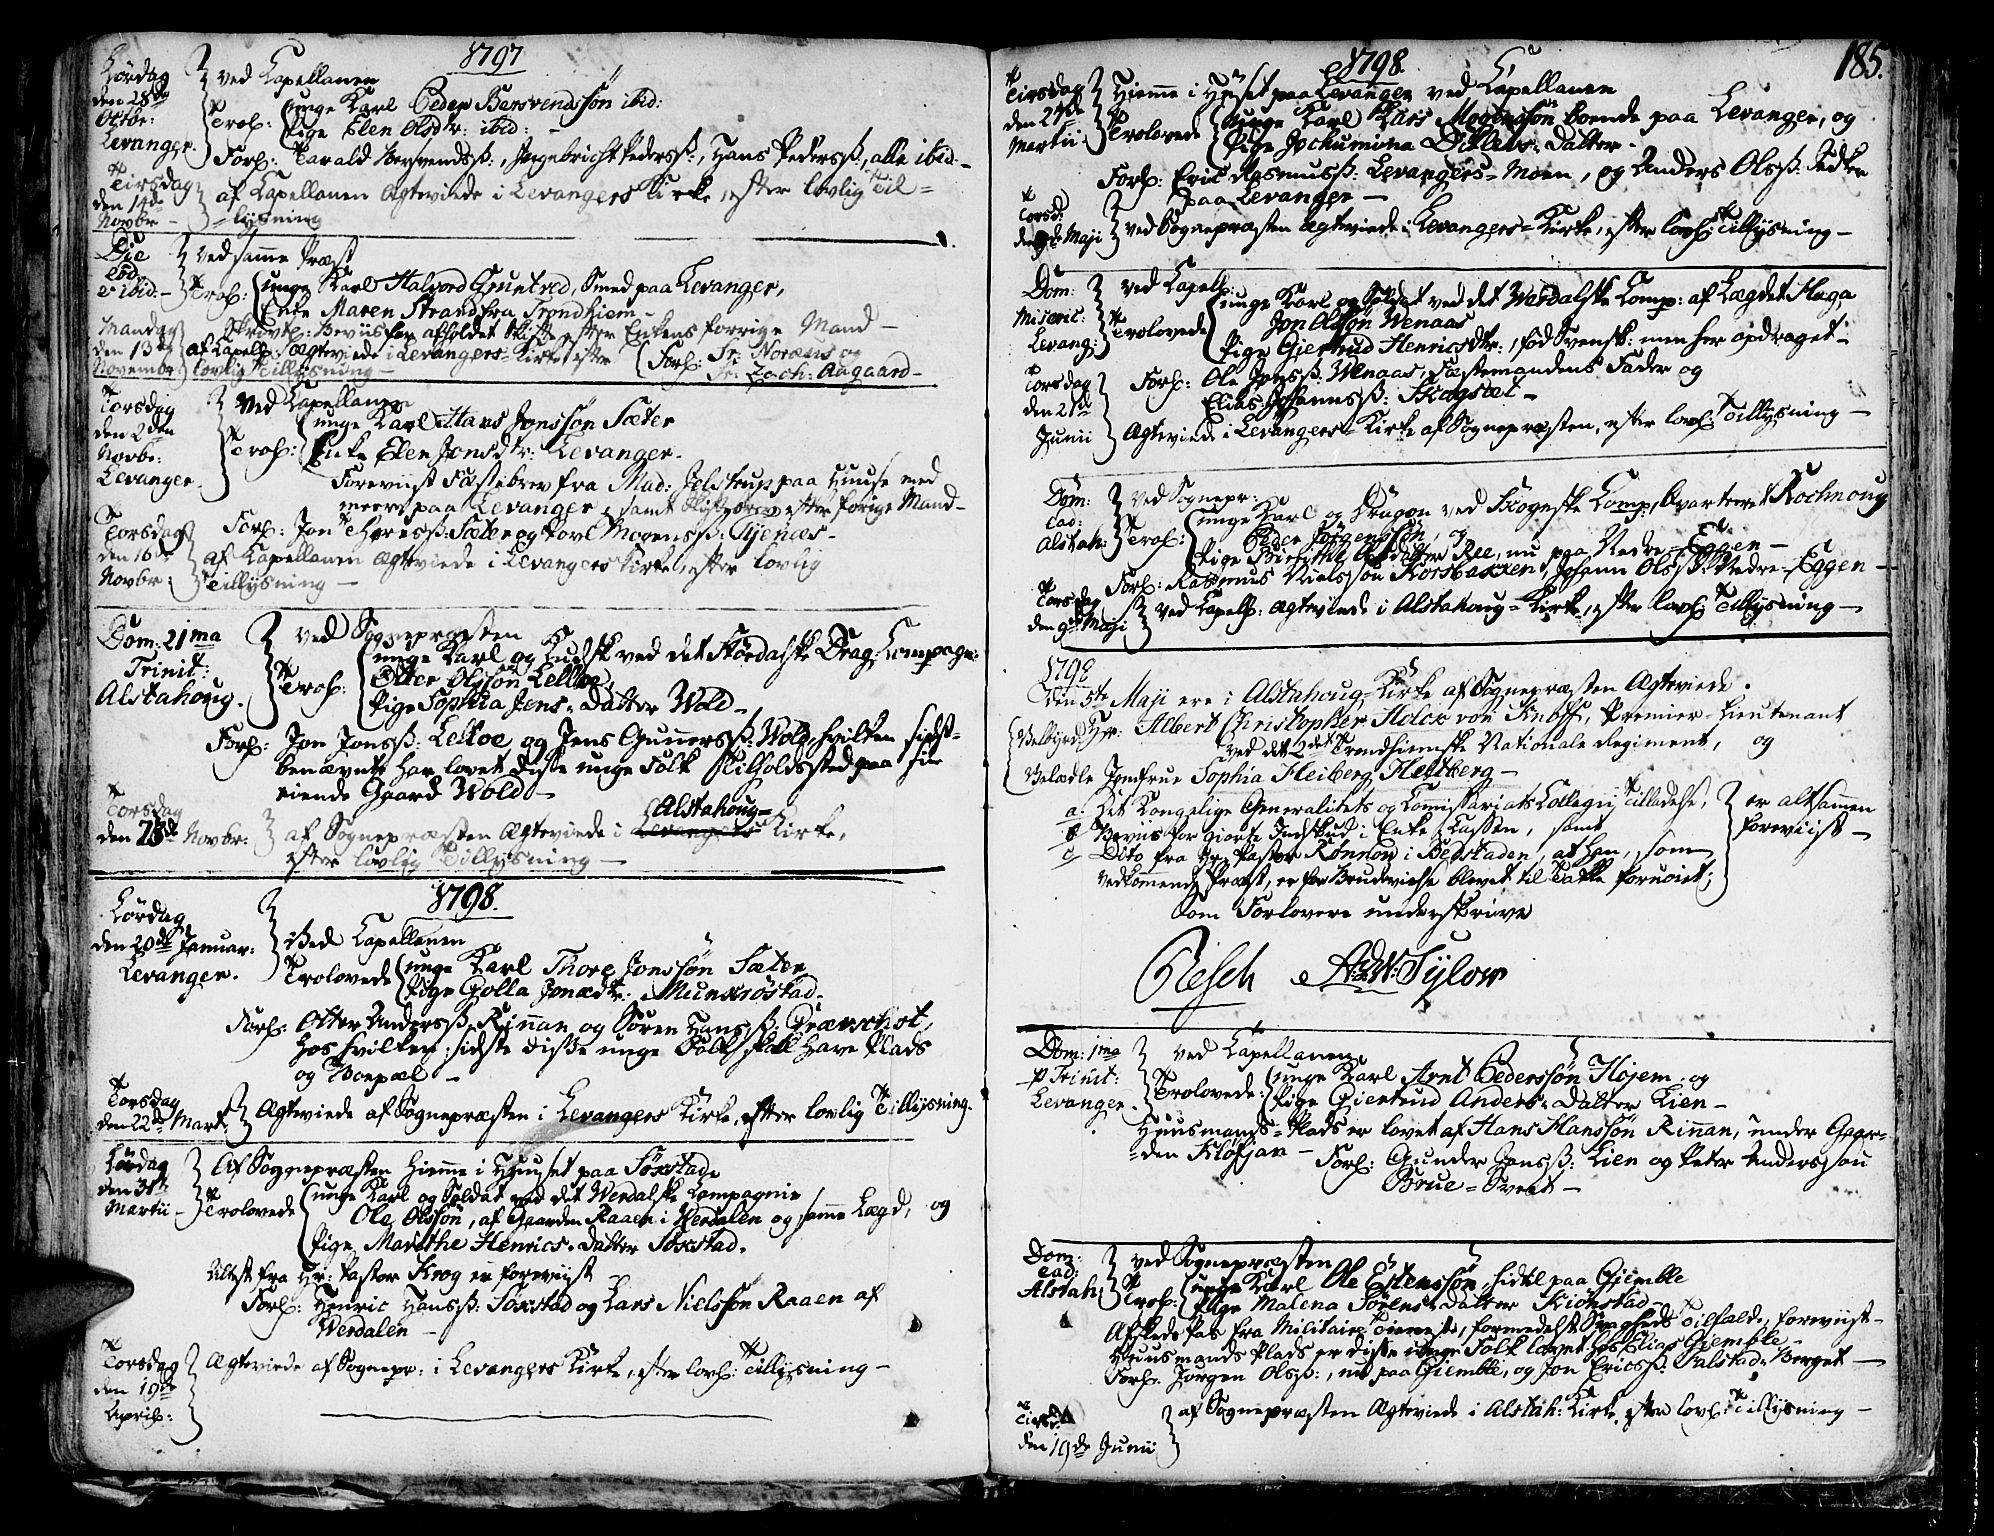 1797
Lördag den 28de Octbr: Levanger.
ved Capellanen
Trol: unge Karl Peder Bersvendssön ibid:
Pige Elen Olsdtr: ibid:
Forl: Tarald Bersvendsß:, Ingebricht Pedersß:, Hans Pedersß:, alle ibid:
Tirsdag den 14de Novbr
af Capellanen Ægteviede i Levangers Kirke, efter lovlig Til=
=lysning
Die eod: e ibid:
ved samme Præst
Trol: unge Karl Halvord Gruntved, Smed paa Levanger,
Enke Maren Strand fra Trondhiem
Beviis for afholdet Skifte efter Enkens forrige Mand
Mandag den 13de Novembr
af Capell: Ægteviede i Levangers Kirke efter
lovlig Tillysning
Forl: Sr: Noræus og
Sr: Zach: Aagaard
Torsdag den 2den Novbr: Levanger
Ved Capellanen
Trol: unge Karl Hans Jonssön Sæter
Enke Elen Jonsdtr: Levanger.
Foreviist Fæstebrev fra Mad: Jelstrup paa Huuse med
meere paa Levanger, samt Skiftebrev efter forige Mand
Forl: Jon Thoresß: Sæter og Povl Mogensß: Tyenæs
Torsdag den 16de Novbr:
af Capellanen Ægteviede i Levangers Kirke, efter lovlig
Tillysning
Dom: 21ma Trinit: Alstahoug.
ved Sognepræsten
Trol: unge Karl og Kudsk ved det Stördalske Drag: Compagn:
Otter Olssön Lelloe
Pige Sophia Jens=Datter Wold
Forl: Jon Jonsß: Lelloe og Jens Gunnersß: Wold, hvilken sidst=
benævnte har lovet disse unge Folk Tilholdssted paa sin
eiende Gaard Wold
Torsdag den 23de Novbr:
af Sognepræsten Ægteviede i Alstahoug= Kirke,
efter lovlig Tillysning
1798.
Lördag den 20de Januar: Levanger.
Ved Capellanen
Trolovede unge Karl Thore Jonssön Sæter
Pige Golla Jonædtr: Munkröstad.
Forl: Otter Andersß: Rinnan og Sören Hansß:
hos hvilken sidste disse unge Folk skal have Plads
og Boepæl
Torsdag den 22de Mart:
Ægteviede af Sognepræsten i Levangers Kirke, efter lovlig Tillysning.
Lördag den 3die Martii
Af Sognepræsten hiemme i Huuset paa Söxstad
Trolovede unge Karl og Soldat ved det Werdalske Compagnie
Ole Olssön, af Gaarden Raaen i Werdalen og samme Lægd, og
Pige Marithe Henrics=Datter Söxstad.
Attest fra Hr: Pastor Krog er foreviist
Forl: Henric Hansß: Söxstad og Lars Nielssön Raaen af
Werdalen
Torsdag den 19de April:
Ægteviede af Sognepr: i Levangers Kirke, efter lovl: Tillysning
185.
1798.
Tirsdag den 27de Martii
Hiemme i Huset paa Levanger ved Capellanen
Trolovede unge Karl Lars Mogensön boende paa Levanger, og
Pige Jochumina Ditlevs=Datter
Forl: Eric Rasmusß: Levangers=Moen, og Anders Olsß:
paa Levanger
Torsd: Maji
ved Sognepræsten Ægteviede i Levangers=Kirke, efter lovl: Tillysning
Dom: Miseric: Levang:
ved Capell:
Trolovede unge Karl og Soldat ved det Werdalske Comp: af Lægdet Haga
Jon Olssön Wenaas
Pige Giertrud Henricsdtr:, föd Svensk: men her opdraget
Forl: Ole Jonsß: Wenaas, Fæstemandens Fader og
Elias Johannsß: Skogstæl
Torsdag den 21de Junii
Ægteviede i Levangers Kirke af Sognepræsten, efter lovl: Tillysning
Dom: Ead: Alstah:
ved Sognepr:
Trol: unge Karl og Dragon ved Skognske Comp:, Qvarteret Kochnoug
Peder Jörgenssön, og
Pige Birhitha Olsdatter Ree, nu paa Nedre=Eggen
Forl: Rasmus Nielssön Korsbakken, Johann Olsß: Nedre=Eggen
Torsdag den 9de Maji
ved Capell: Ægteviede i Alstahoug=Kirke, efter lovl: Tillysning
1798
den 5te Maji ere i Alstahoug=Kirke af Sognepræsten Ægteviede
Velbyrd: Hr: Albert Christopher Helox von Knoff, Premier=Lieutenant
ved det 2det Trondhiemske Nationale Regiment, og
Velædle Jomfrue Sophia Heiberg Heltberg
a. Det Kongelige Generalitets og Comissariats Collegii Tilladelse,
b Beviis for giorte Indskud i Enke Cassen, samt
c Dito fra Hr: Pastor Rönnou i Bedstaden, at han, som
vedkommende Præst, er for Brudevielse blevet til Takke fornöiet;
er altsammen
foreviist
Som Forlovere underskrive
Resch A:W:Sylow
Dom: 1ma p Trinit: Levanger.
ved Capellanen
Trolovede: unge Karl Arnt Pederssön Höjem, og
Pige Giertrud Anders=Datter Lien
Huusmands=Plads er lovet af Hans Hanssön Rinnan, under Gaar=
=den Klöfjan
Forl: Gunder Jonsß: Lien og Peter Anderssön
Brue=Sveet
Dom: Ead: Alstah:
ved Sognepræsten
Trol: unge Karl Ole Estenssön, hidtil paa Giemble
Pige Malena Sörens=Datter Kiönstad
Afskeds Pas fra Militaire Tieneste, formedelst Svagheds Tilfælde, foreviist
Huusmands Plads er disse unge Folk lovet hos Elias Giemble
Forl: Jörgen Olsß:, nu paa Giemble, og Jon Ericsß: Salstad=Berget
Tirsd: den 19de Junii
af Sognepræsten Ægteviede i Alstah: Kirke, efter lovl: Tillysning